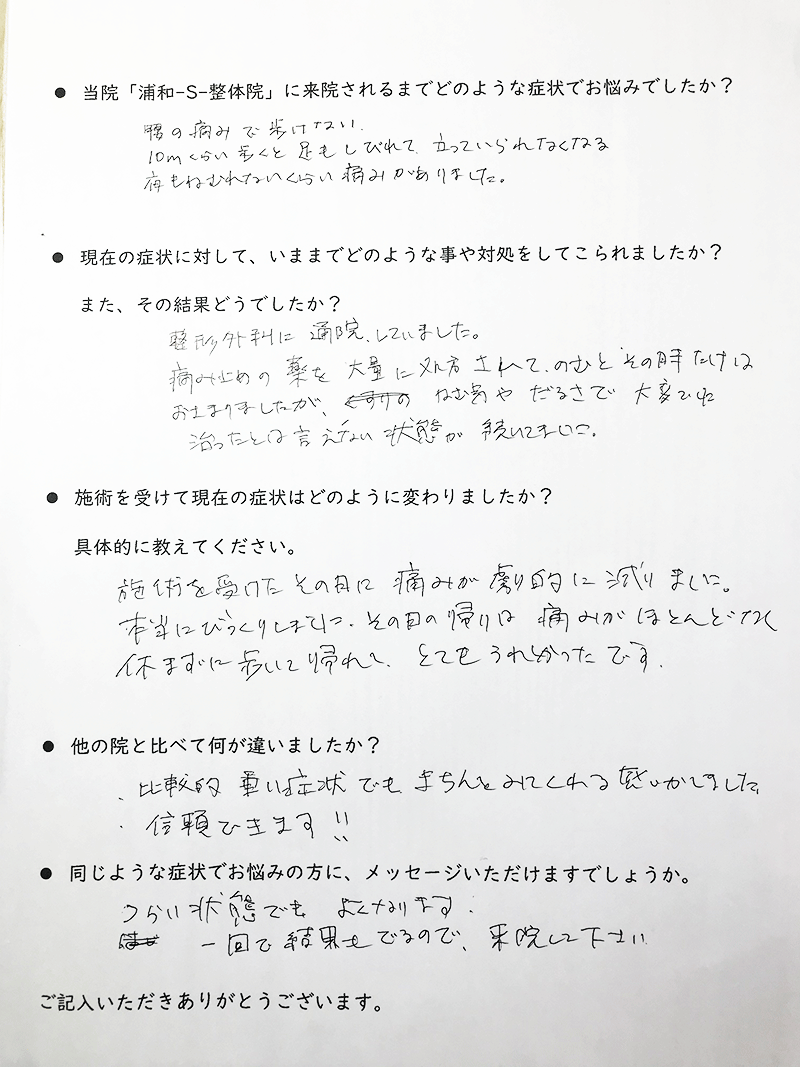 ● 当院「浦和-S-整体院」に来院されるまでどのような症状でお悩みでしたか？
腰の痛みで歩けない.
10mくらい歩くと足もしびれて、立っていられなくなる
夜もねむれないくらい痛みがありました。
● 現在の症状に対して、いままでどのような事や対処をしてこられましたか？
また、その結果どうでしたか？
整形外科に通院、していました。
痛み止めの薬を大量に処方されて、のむとその時だけは
おさまりましたが、ねむ気やだるさで大変でね
治ったとは言えない状態が続いてました。
● 施術を受けて現在の症状はどのように変わりましたか？
具体的に教えてください。
施術を受けたその日に痛みが劇的に減りました。
本当にびっくりしました、その日の帰りは痛みがほとんどなく
休まずに歩いて帰れて、とてもうれしかったです.
● 他の院と比べて何が違いましたか？
・比較的重い症状でもきちんとみてくれる感じがしました
・信頼できます!!
● 同じような症状でお悩みの方に、メッセージいただけますでしょうか。
つらい状態でもよくなります.
一回で結果もでるので、来院して下さい
ご記入いただきありがとうございます。